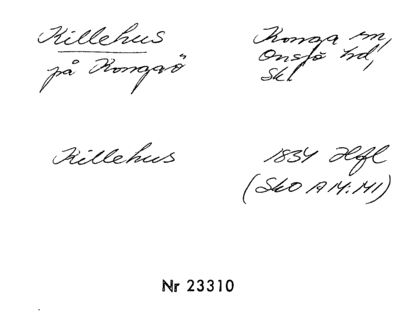 Killehus
på Kongaö
Konga sn,
Onsjö hd,
Skl
Killehus
1834 Hfl
(SkO A M:M1)
Nr 23310